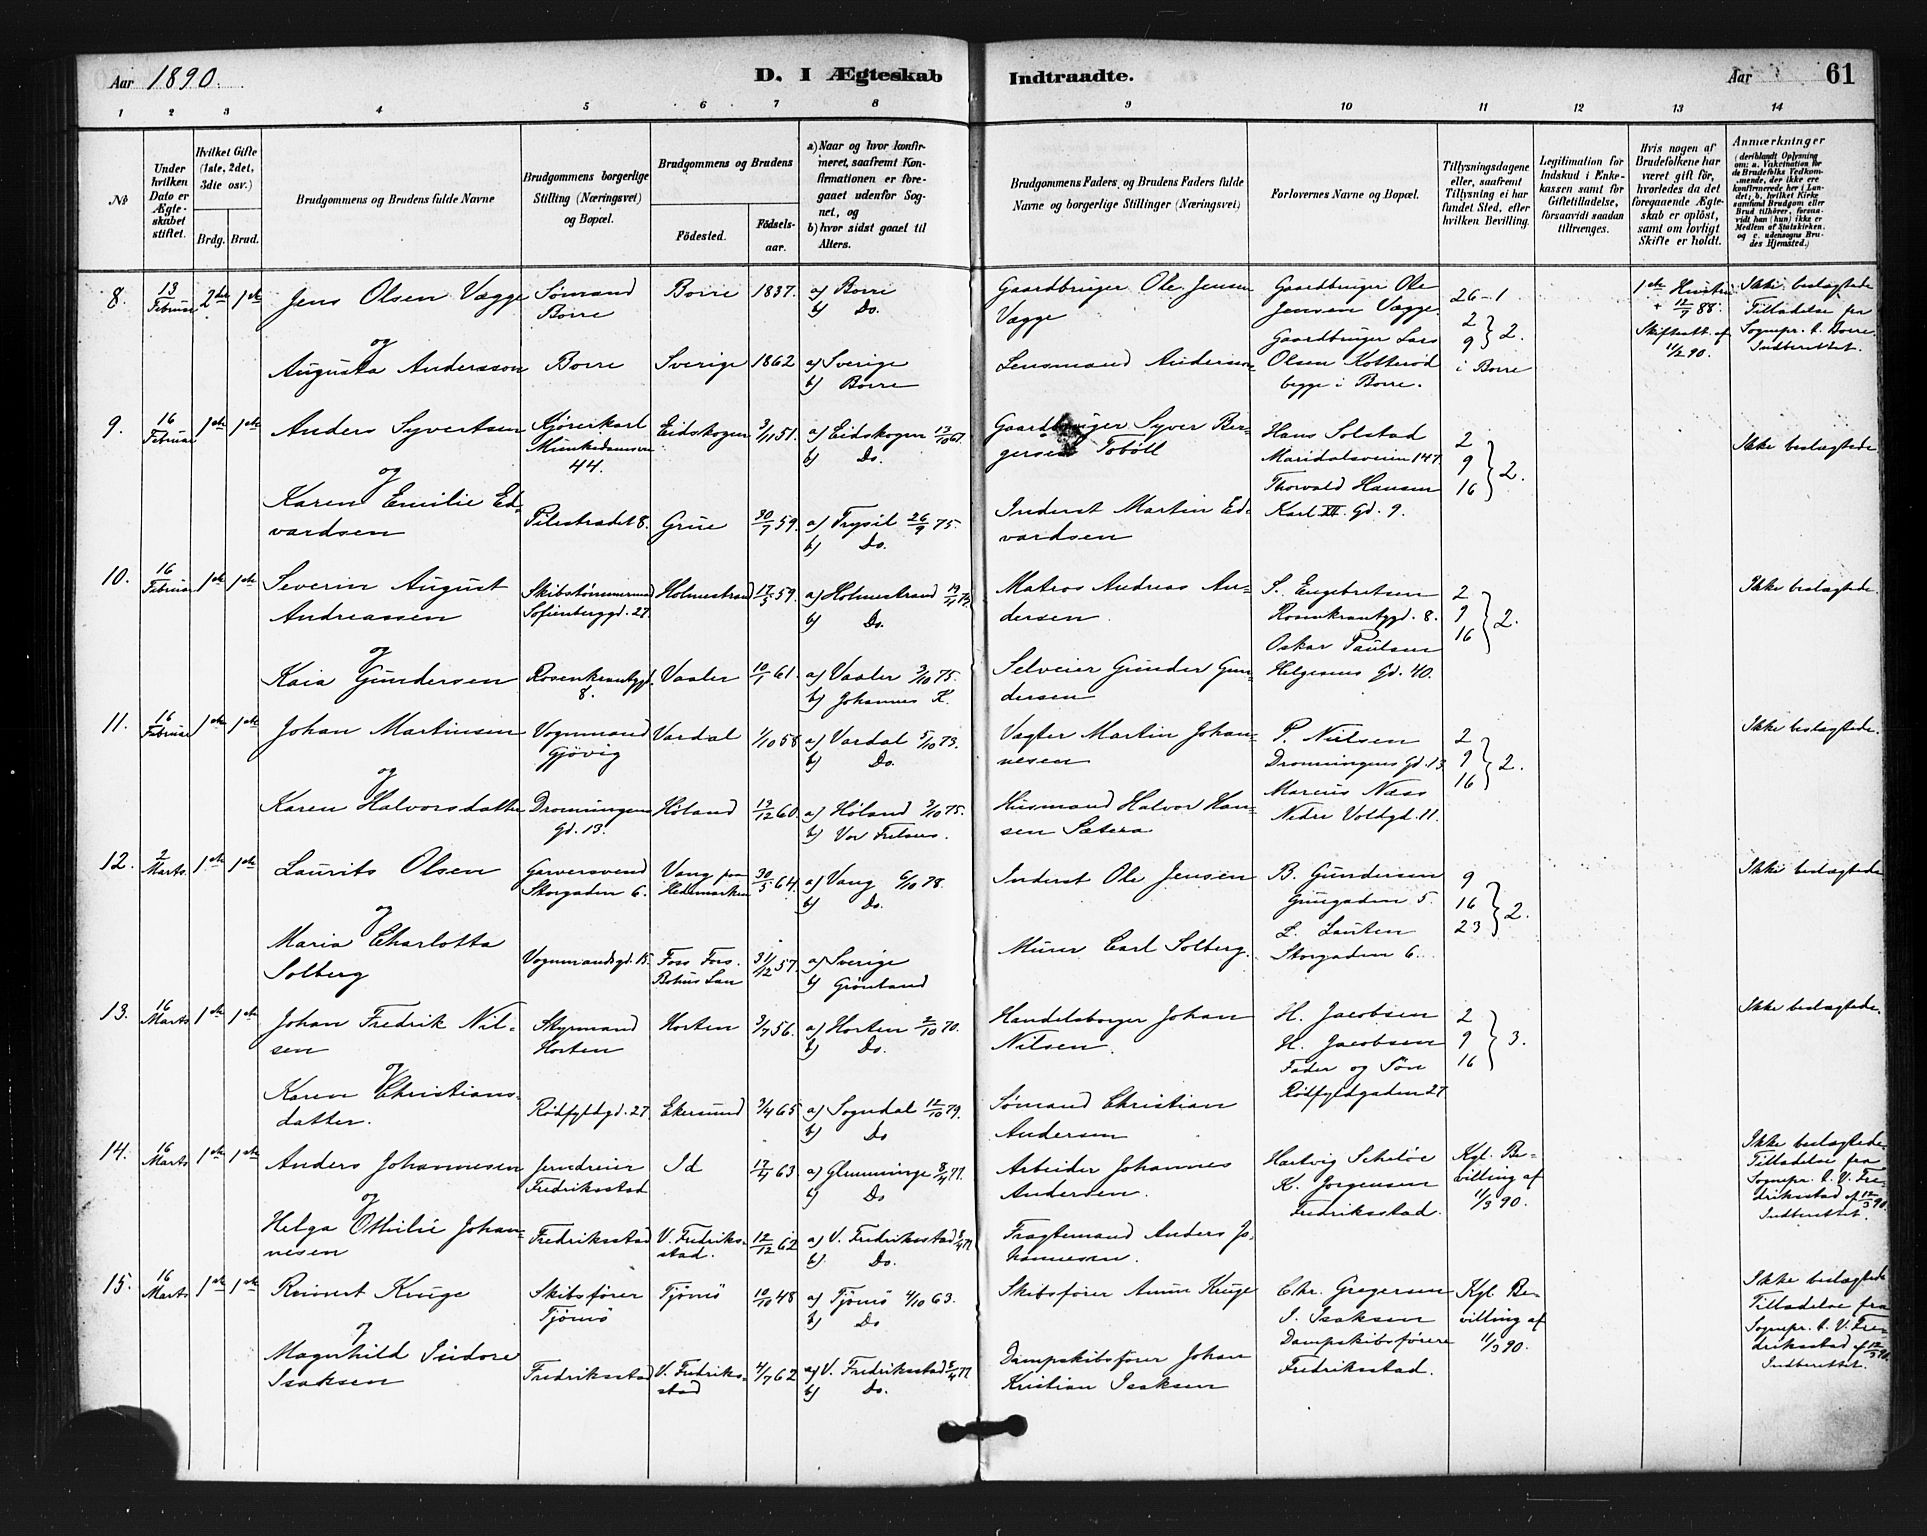 Aar 1890.
D. I Ægteskab
Indtraadte.
Aar
61
1 2 3 4 5 6 7 8 9 10 11 12 13 14
No
Under hvilken Dato er Ægteskabet stiftet.
Hvilket Gifte (1ste, 2det, 3die osv.)
Brdg. Brud.
Brudgommens og Brudens fulde Navne
Brudgommens borgerlige Stilling (Næringsvei) og Bopæl.
Brudgommens og Brudens
Födested.
Födsels-aar.
a) Naar og hvor konfirmeret, saafremt Konfirmationen er foregaaet udenfor Sognet, og
b) hvor sidst gaaet til Alters.
Brudgommens Faders, og Brudens Faders fulde Navne og borgerlige Stillinger (Næringsvei)
Forlovernes Navne og Bopæl.
Tillysningsdagene eller, saafremt Tillysning ei har fundet Sted, efter hvilken Bevilling.
Legitimation for Indskud i Enkekassen samt for Giftetilladelse, forsaavidt saadan tiltrænges.
Hvis nogen af Brudefolkene har været gift för, hvorledes da det foregaaende Ægteskab er oplöst, samt om lovligt Skifte er holdt.
Anmærkninger
(deriblandt Oplysning om: a. Vakcination for de Brudefolks Vedkommende, der ikke ere konfirmerede her i Landet; b. hvilket Kirkesamfund Brudgom eller Brud tilhörer, forsaavidt han (hun) ikke er Medlem af Statskirken. og c. udensogns Brudes Hjemsted.)
8. 13/Februar 2det 1ste Jens Olsen Vægge Sømand Borre Borre 1837. a) Borre b) Do. Gaardbruger Ole Jensen Vægge Gaardbruger Ole Jensen Vægge. Gaardbruger Lars Olsen Kotterød begge i Borre. 26-1 2 9 } 2. i Borre 1ste Hustru + 12/7 88. Skifteatt. af 11/2 90. Ikke beslægtede Tilladelse fra Sognepr. t. Borre. Indberettet.
og
Augusta Andersson Borre Sverige 1862 a) Sverige b) Borre Lensmand Andersson
9. 16/Februar 1ste 1ste Anders Syvertsen Kjørerkarl Munkedamsvn 44. Eidskogen 3/11 51. a) Eidskogen 13/10 67. b) Do. Gaardbruger Syver Bergersen Tobøll Hans Solstad Maridalsveien 147. Thorvald Hansen Karl XII. Gd. 9. 2 9 16 } 2. Ikke beslægtede
og
Karen Emilie Edvardsen Pilestrædet 8. Grue 30/7 59. a) Trysil 26/9 75. b) Do. Inderst Martin Edvardsen
10. 16/Februar 1ste 1ste Severin August Andreassen Skibstømmermand Sofienberggd. 27. Holmestrand 17/5 59. a) Holmestrand b) Do. Matros Andreas Andersen. S. Engebretsen Rosenkrantzgd. 8. Oskar Paulsen Helgesens Gd. 40. 2 9 16 } 2. Ikke beslægtede.
og
Kaia Gundersen Rosenkrantzgd. 8. Vaaler 10/1 61. a) Vaaler 3/10 75. b) Johannes K. Selveier Gunder Gundersen
11. 16/Februar 1ste 1ste Johan Martinsen Vognmand Gjøvig Vardal 1/10 58 a) Vardal 5/10 73. b) Do. Vagter Martin Johannesen P. Nielsen Dronningens Gd. 13 Marius Næss Nedre Voldgd. 11. 2 9 16 } 2. Ikke beslægtede.
og
Karen Halvorsdatter Dronningens Gd. 13. Høland 13/12 60. a) Høland 3/10 75. b) Vor Frelsers. Husmand Halvor Hansen Sætera
12. 2/Marts 1ste 1ste Laurits Olsen Garversvend Storgaden 6. Vang paa Hedemarken 30/5 64. a) Vang 6/10 78. b) Do. Inderst Ole Jensen B. Gundersen Grungaden 5. L. Lauten Storgaden 6. 9 16 23 } 2. Ikke beslægtede
og
Maria Charlotta Solberg Vognmandsgd. 15. Foss Fors. Bohus Län 31/12 57. a) Sverige b) Grønland Murer Carl Solberg.
13. 16/Marts 1ste 1ste Johan Fredrik Nilsen Styrmand Horten Horten 3/7 56. a) Horten 2/10 70. b) Do. Handelsborger Johan Nilsen. H. Jacobsen H. Jacobsen Fader og Søn Rødfyldgaden 27 2 9 16 } 3. Ikke beslægtede.
og
Karen Christiansdatter. Rødfyldgd. 27 Ekersund 3/4 65 a) Sogndal 12/10 79. b) Do Sømand Christian Andersen
14. 16/Marts 1ste 1ste Anders Johannesen Jerndreier Fredriksstad Id 17/4 63 a) Glemminge 8/4 77. b) Do Arbeider Johannes Andersen. Hartvig Scheløe K. Jørgensen Fredriksstad. Kgl. Bevilling af 11/3 90. Ikke beslægtede Tilladelse fra Sognepr. t. V. Fredriksstad af 12/3 90. Indberettet.
og
Helga Othilie Johannesen Fredriksstad V. Fredriksstad. 12/12 62 a) V. Fredriksstad 8/4 77 b) Do. Fragtemand Anders Johannesen.
15. 16/Marts 1ste 1ste Reinert Kruge Skibsfører Tjømø Tjømø 10/10 48 a) Tjømø 4/10 63. b) Do Skibsfører Amun Kruge Chr. Gregersen I. Isaksen Dampskibsførere Fredriksstad. Kgl. Bevilling af 11/3 90. Ikke beslægtede Tilladelse fra Sognepr. t. V. Fredriksstad af 12/3 90. Indberettet.
og
Magnhild Isidore Isaksen Fredriksstad V. Fredriksstad 4/7 62 a) V. Fredriksstad 8/4 77 b) Do. Dampskibsfører Johan Kristian Isaksen